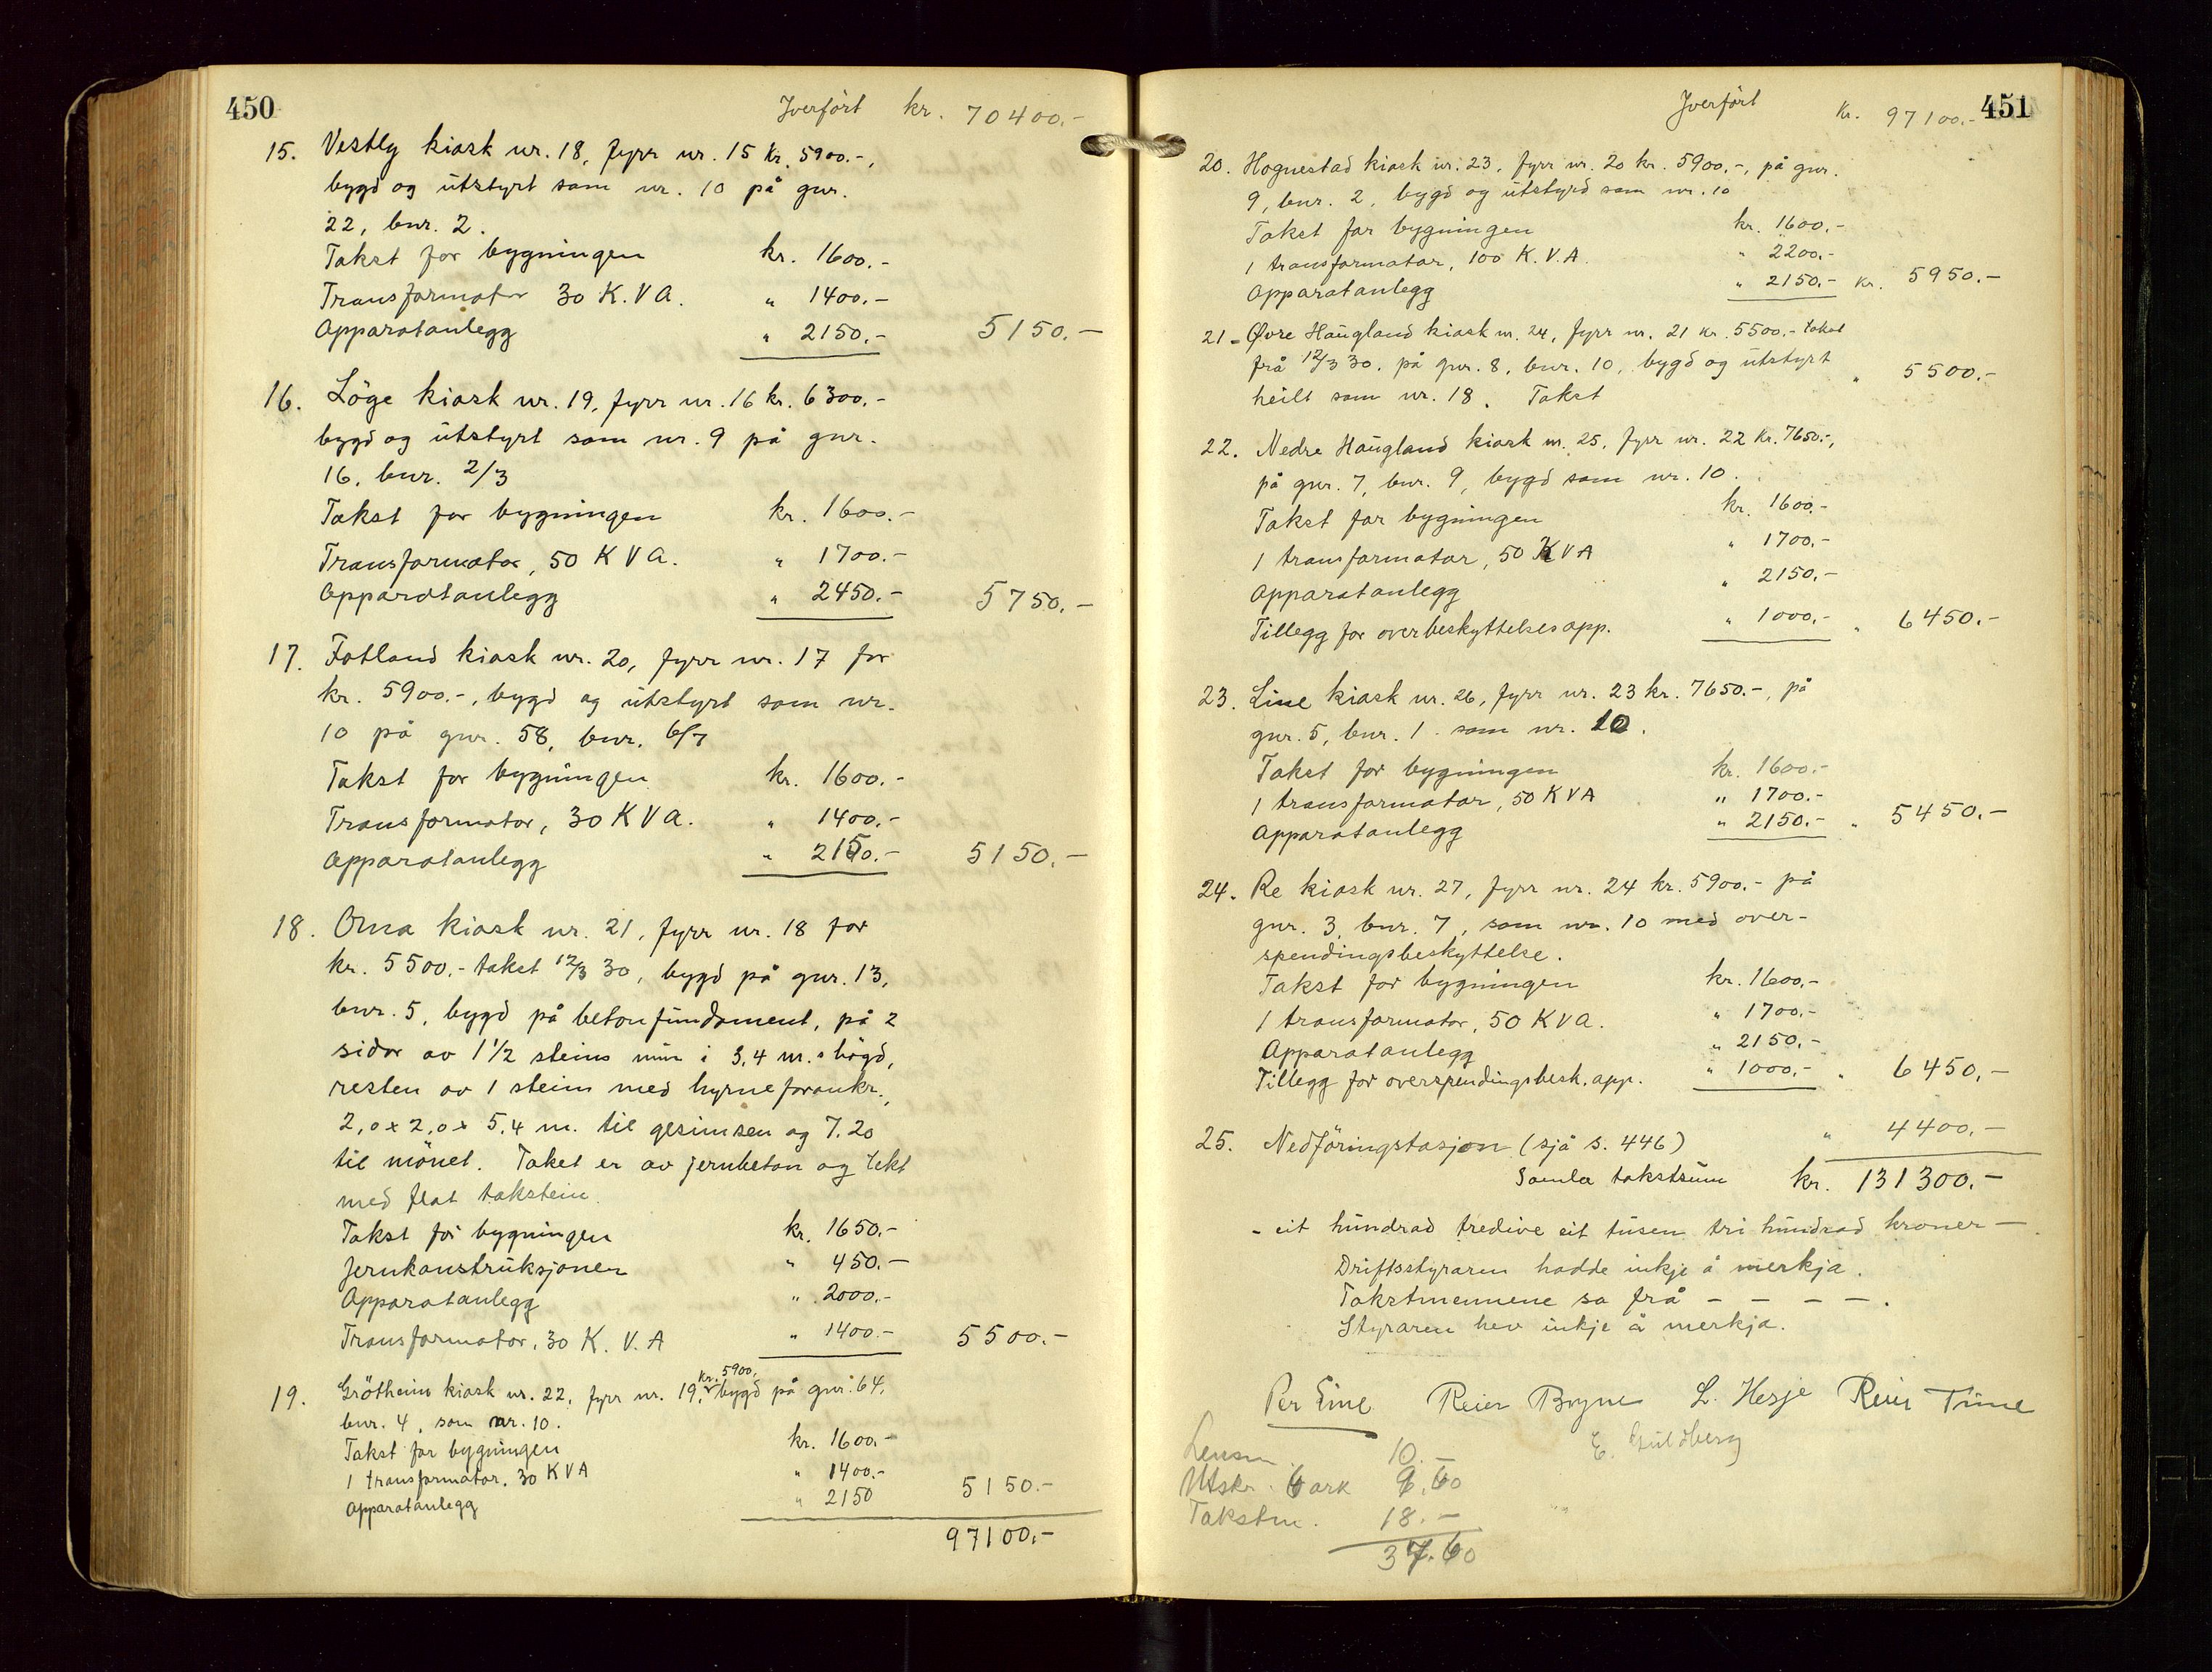 450
Yverført kr. 70400.-
15. Vestly kiosk nr. 18, fyrr nr. 15 kr. 5900.-,
bygd og útstyrt som nr. 10 på gnr.
22, bnr. 2.
Takst for bygningen kr. 1600.-
Transformator 30 K.V.A. " 1400.-
Apparatanlegg " 2150.- 5150.-
16. Löge kiosk nr. 19, fyrr nr. 16 kr. 6300.-
bygd og útstyrt som nr. 9 på gnr.
16, bnr. 2/3
Takst for bygningen kr. 1600.-
Transformator, 50 K V A. " 1700.-
Apparatanlegg " 2450.- 5750.-
17. Fotland kiosk nr. 20, fyrr nr. 17 for
kr. 5900.-, bygd og útstyrt som nr.
10 på gnr. 58, bnr. 6/7
Takst for bygningen kr. 1600.-
Transformator, 30 K V A. " 1400.-
Apparatanlegg " 2150.- 5150.-
18. Orna kiosk nr. 21, fyrr nr. 18 for
kr. 5500.- takst 12/3 30, bygd på gnr. 13,
bnr. 5, bygd på betonfundament, på 2
sidor av 1 1/2 steins mur i 3,4 m.s högd,
resten av 1 stein med hyrneforankr.,
2,0 x 2,0 x 5,4 m. til gesimsen og 7.20
til mönet. Taket er av jernbeton og tekt
med flat takstein.
Takst for bygningen kr. 1650.-
Jernkonstruksjonen " 450.-
Apparatanlegg " 2000.-
Transformator, 30 K. V. A " 1400.- 5500.-
kr. 5900,
19. Grötheim kiosk nr. 22, fyrr nr. 19, bygd på gnr. 64,
bnr. 4, som nr. 10.
Takst for bygningen kr. 1600.-
1 transformator, 30 K V A " 1400.-
Apparatanlegg " 2150 5150.-
97100.-
451
Yverført kr. 97100.-
20. Hognestad kiosk nr. 23, fyrr nr. 20 kr. 5900.-, på gnr.
9, bnr. 2, bygd og útstyrd som nr. 10
Takst for bygningen kr. 1600.-
1 transformator, 100 K.V.A. " 2200.-
Apparatanlegg " 2150.- kr. 5950.-
21. Øvre Haugland kiosk nr. 24, fyrr nr. 21 kr. 5500.- takst
frå 12/3 30, på gnr. 8, bnr. 10, bygd og útstyrt
heilt som nr. 18. Takst " 5500.-
22. Nedre Haugland kiosk nr. 25, fyrr nr. 22 kr. 7650.-,
på gnr. 7, bnr. 9, bygd som nr. 10.
Takst for bygningen kr. 1600.-
1 transformator, 50 K V A " 1700.-
Apparatanlegg " 2150.-
Tillegg for overbeskyttelsesapp. " 1000.- " 6450.-
23. Line kiosk nr. 26, fyrr nr. 23 kr. 7650.-, på
gnr. 5, bnr. 1. som nr. 10.
Takst for bygningen kr. 1600.-
1 transformator, 50 K V A " 1700.-
Apparatanlegg " 2150.- " 5450.-
24. Re kiosk nr. 27, fyrr nr. 24 kr. 5900.- på
gnr. 3, bnr. 7, som nr. 10 med over-
spendingsbeskyttelse.
Takst for bygningen kr. 1600.-
1 transformator, 50 K V A. " 1700.-
Apparatanlegg " 2150.-
Tillegg for overspendingsbesk. app. " 1000.- " 6450.-
25. Nedföringstasjon (sjå s. 446) " 4400.-
Samla takstsum kr. 131300.-
- eit hundrad tredive eit tusen tri hundrad kroner -
Driftsstyraren hadde inkje å merkja.
Takstmennene sa frå - - - -.
Styraren hev inkje å merkja.
Per Line Reier Bryne L. Hesje Reier Time
E. Guldberg
Lensm. 10.-
Utskr. 6 ark 9.60
Takstm. 18.-
37.60